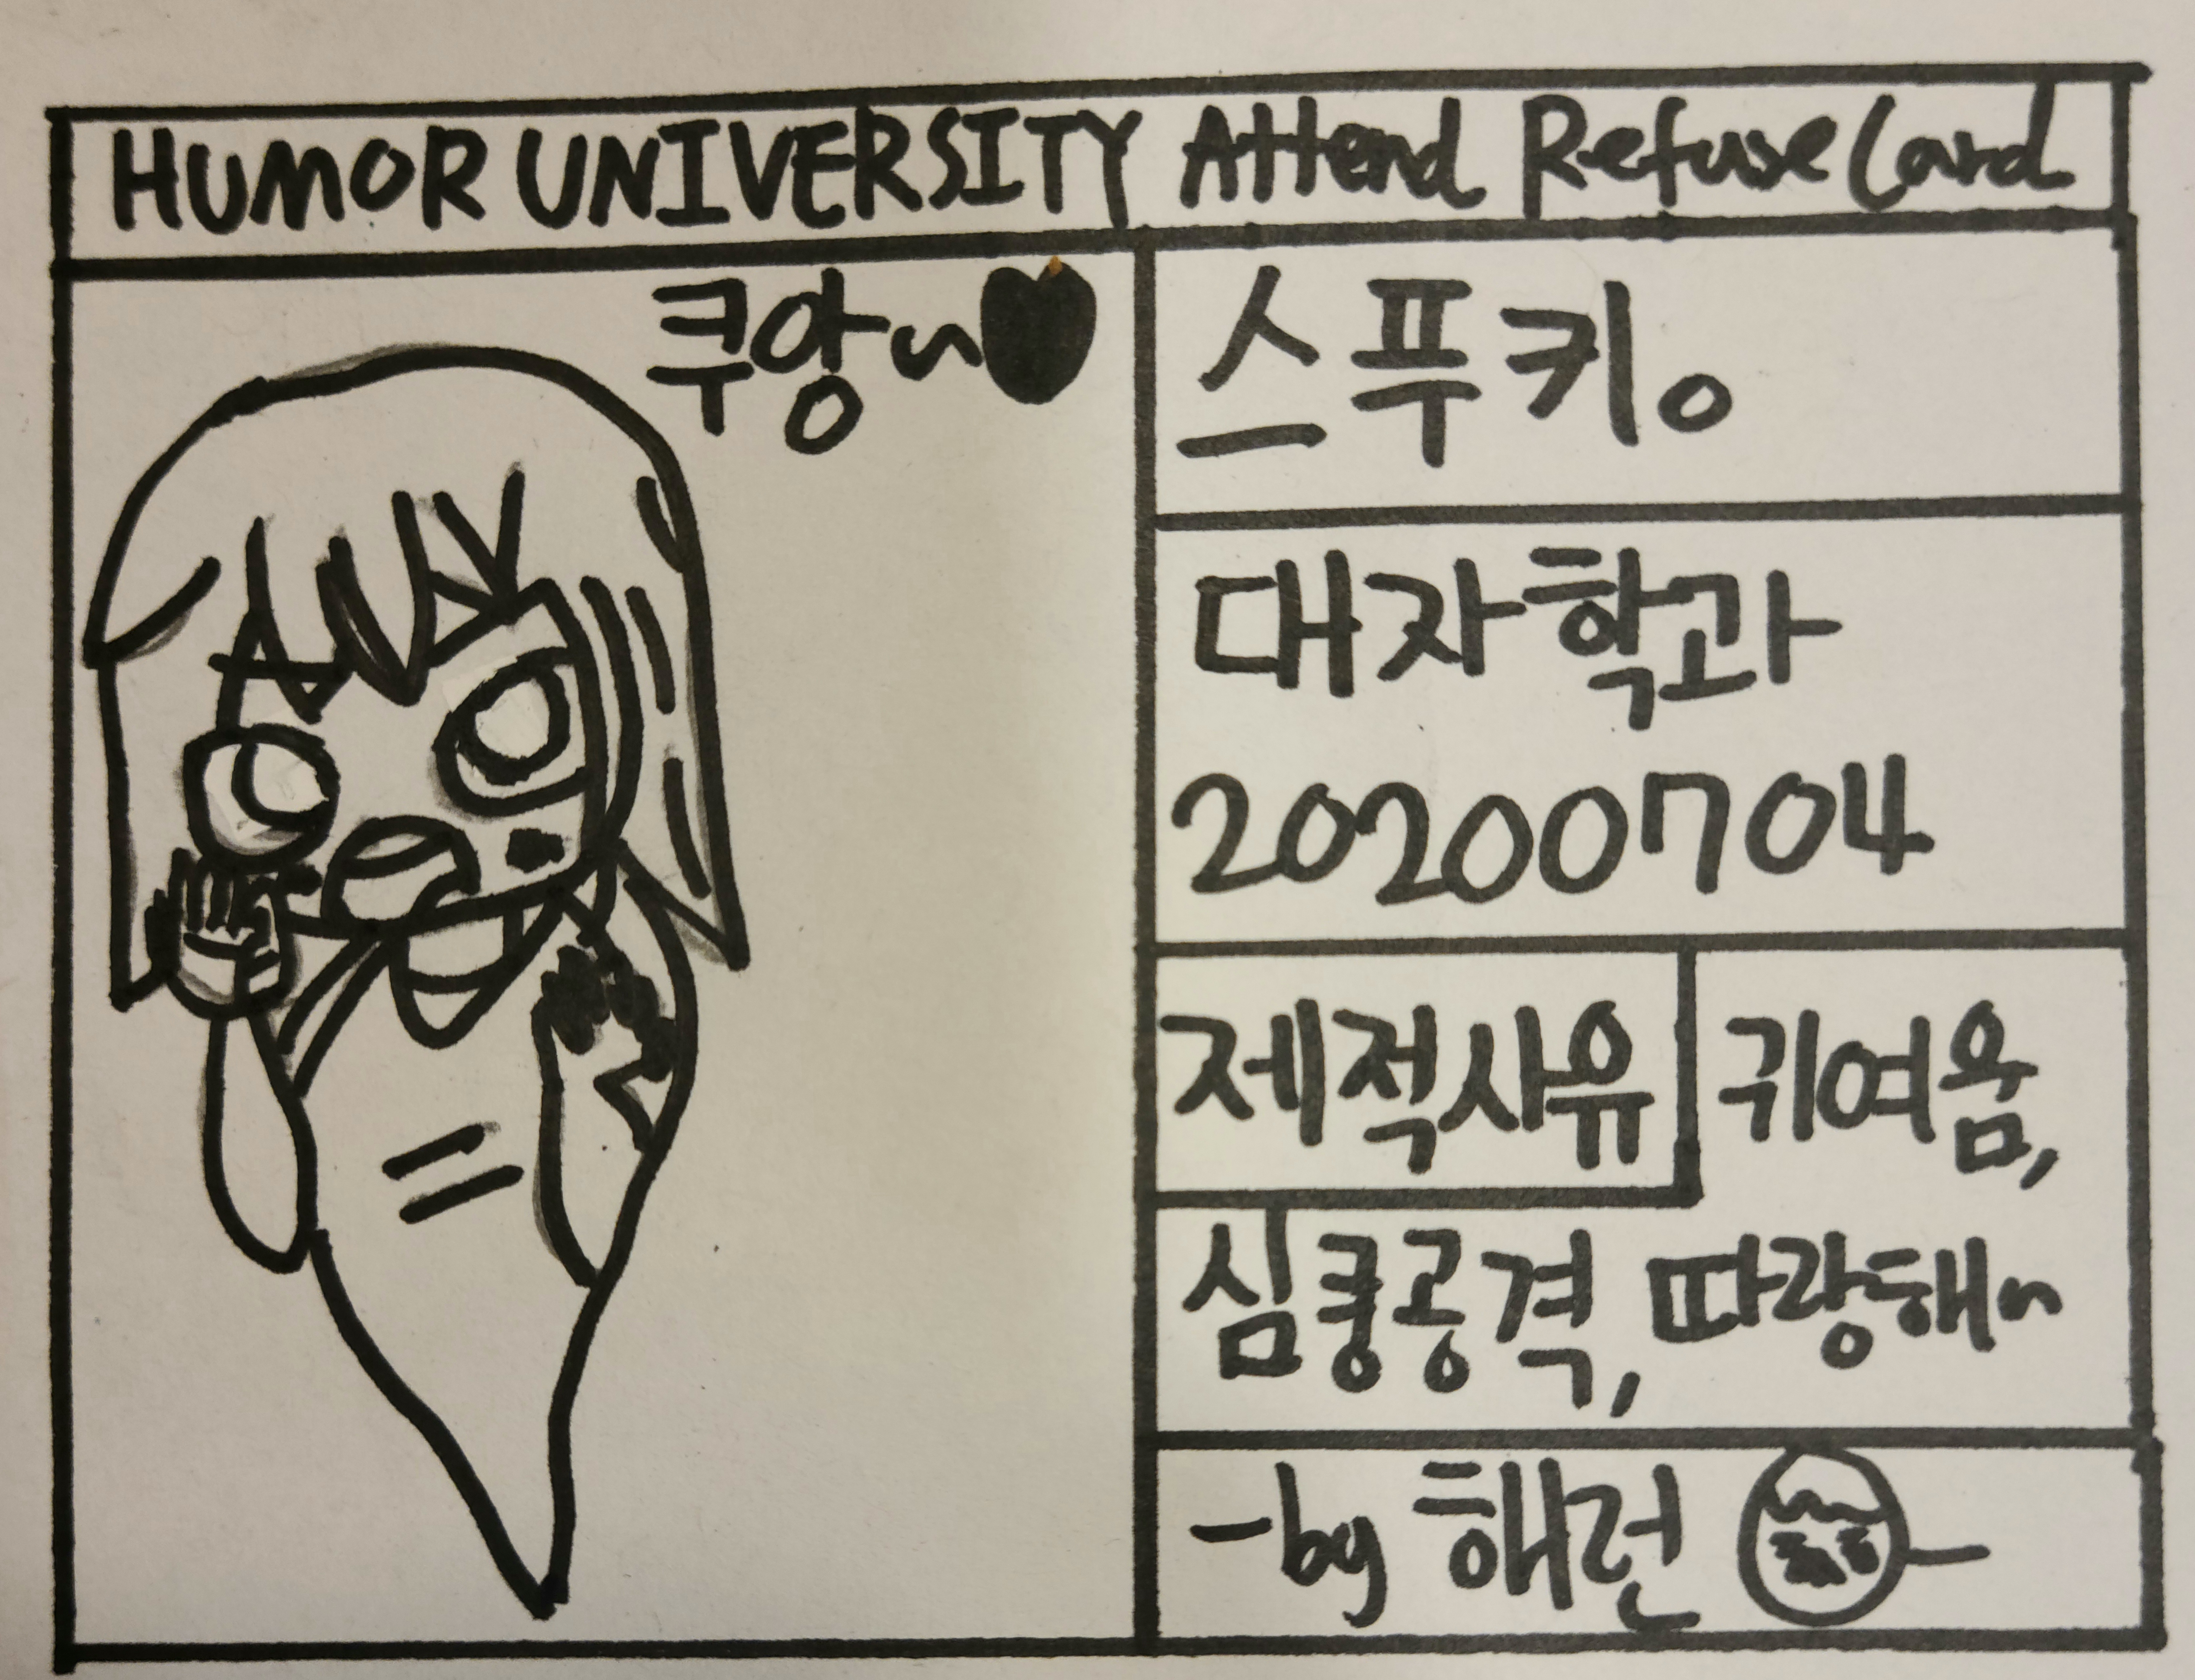 HUMOR UNIVERSITY Attend Refuse Card
쿠앙~♥
스푸키。
대자학과
20200704
제적사유
귀여움,
심쿵공격, 따랑해~
-by 해런 -